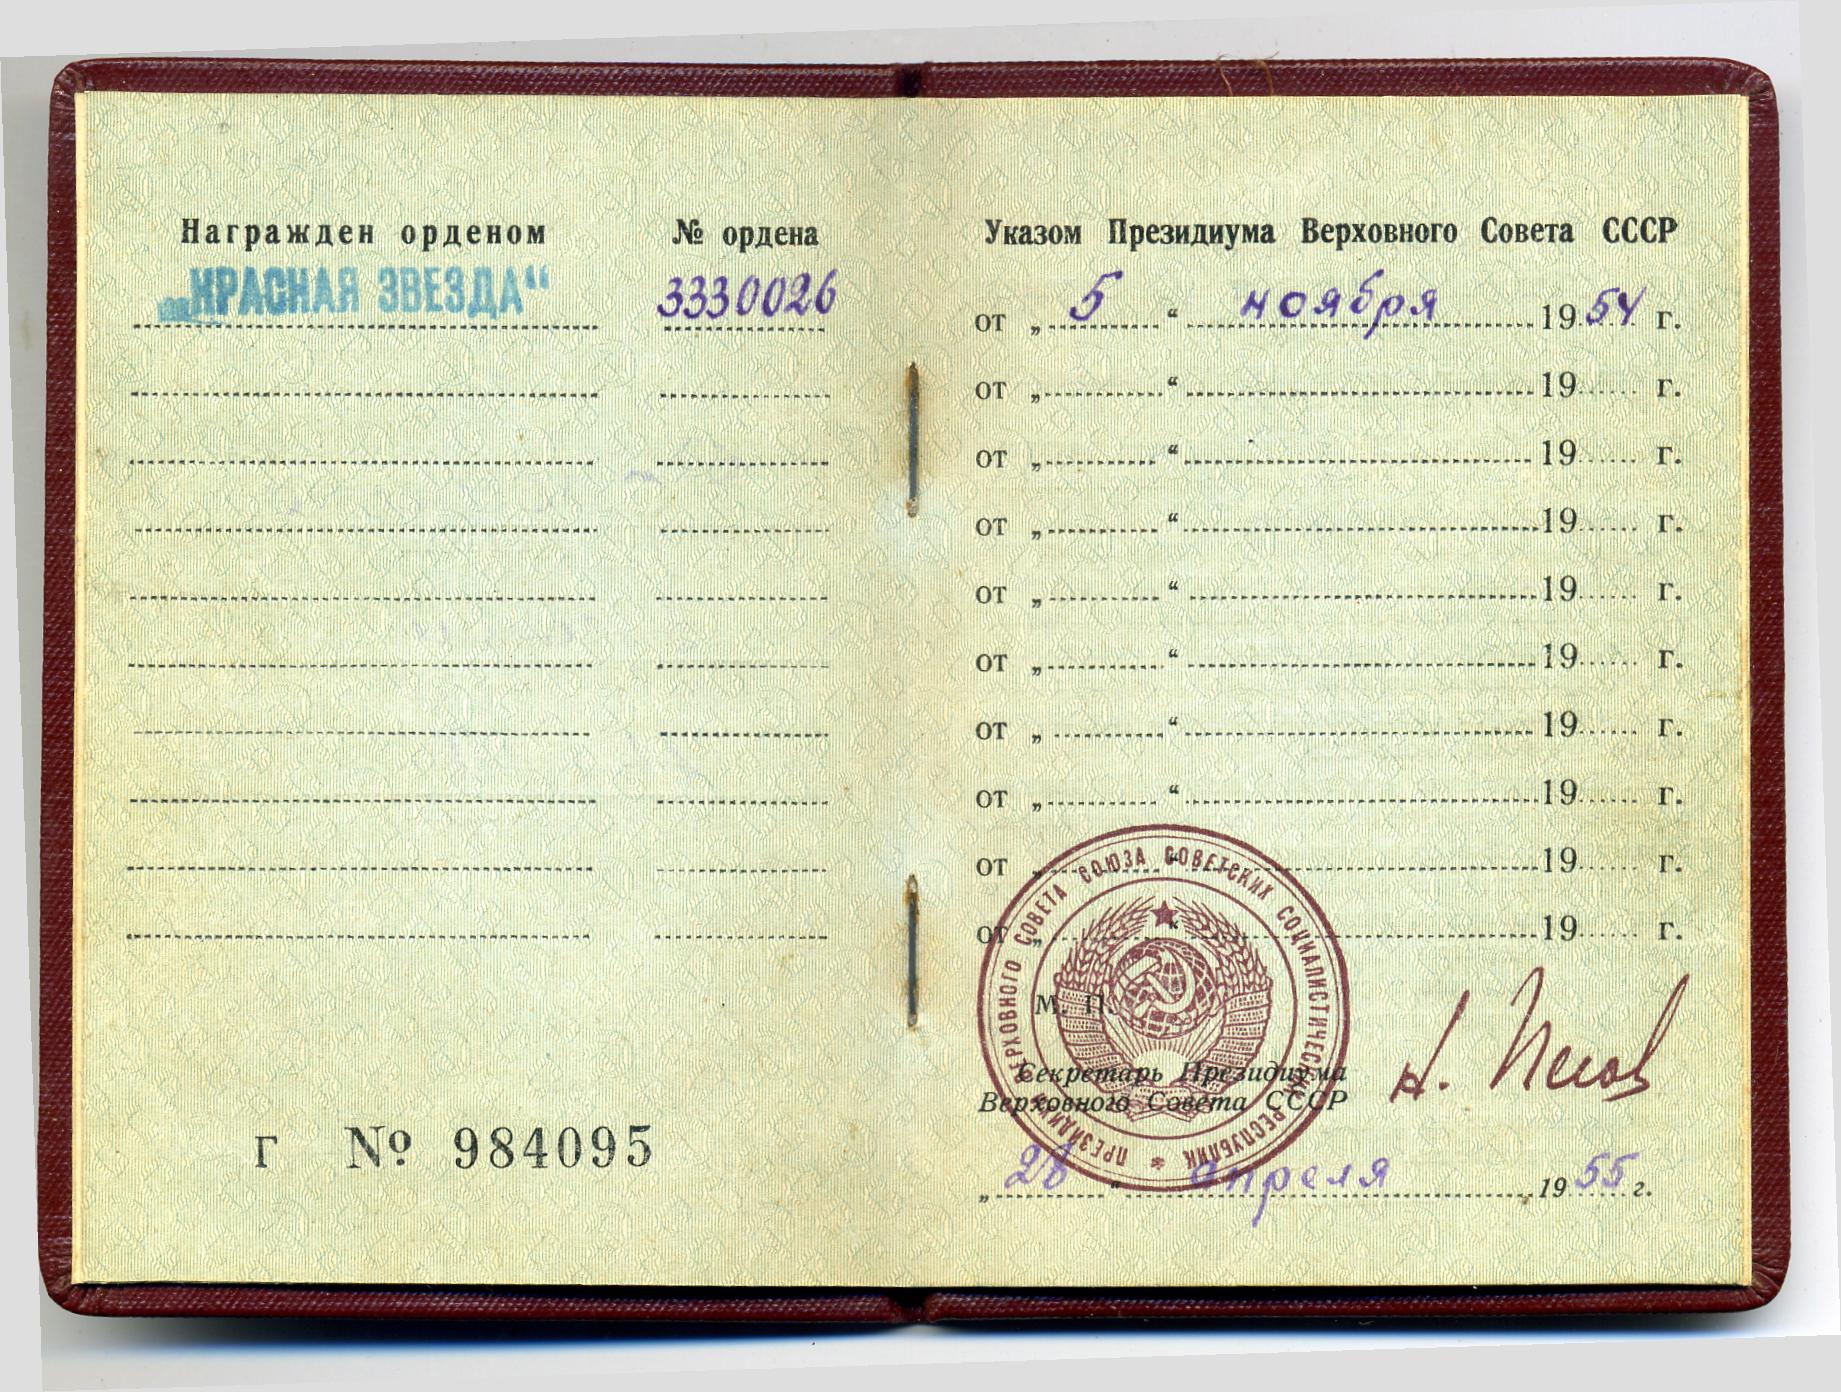 Награжден орденом № ордена
„КРАСНАЯ ЗВЕЗДА“ 3330026
Г № 984095
Указом Президиума Верховного Совета СССР
от „ 5 “ ноября 1954 г.
от „ “ 19 г.
от „ “ 19 г.
от „ “ 19 г.
от „ “ 19 г.
от „ “ 19 г.
от „ “ 19 г.
от „ “ 19 г.
от „ “ 19 г.
от „ “ 19 г.
ПРЕЗИДИУМ ВЕРХОВНОГО СОВЕТА СОЮЗА СОВЕТСКИХ СОЦИАЛИСТИЧЕСКИХ РЕСПУБЛИК
М. П.
Секретарь Президиума
Верховного Совета СССР
Н. Пегов
„ 28 “ апреля 1955 г.